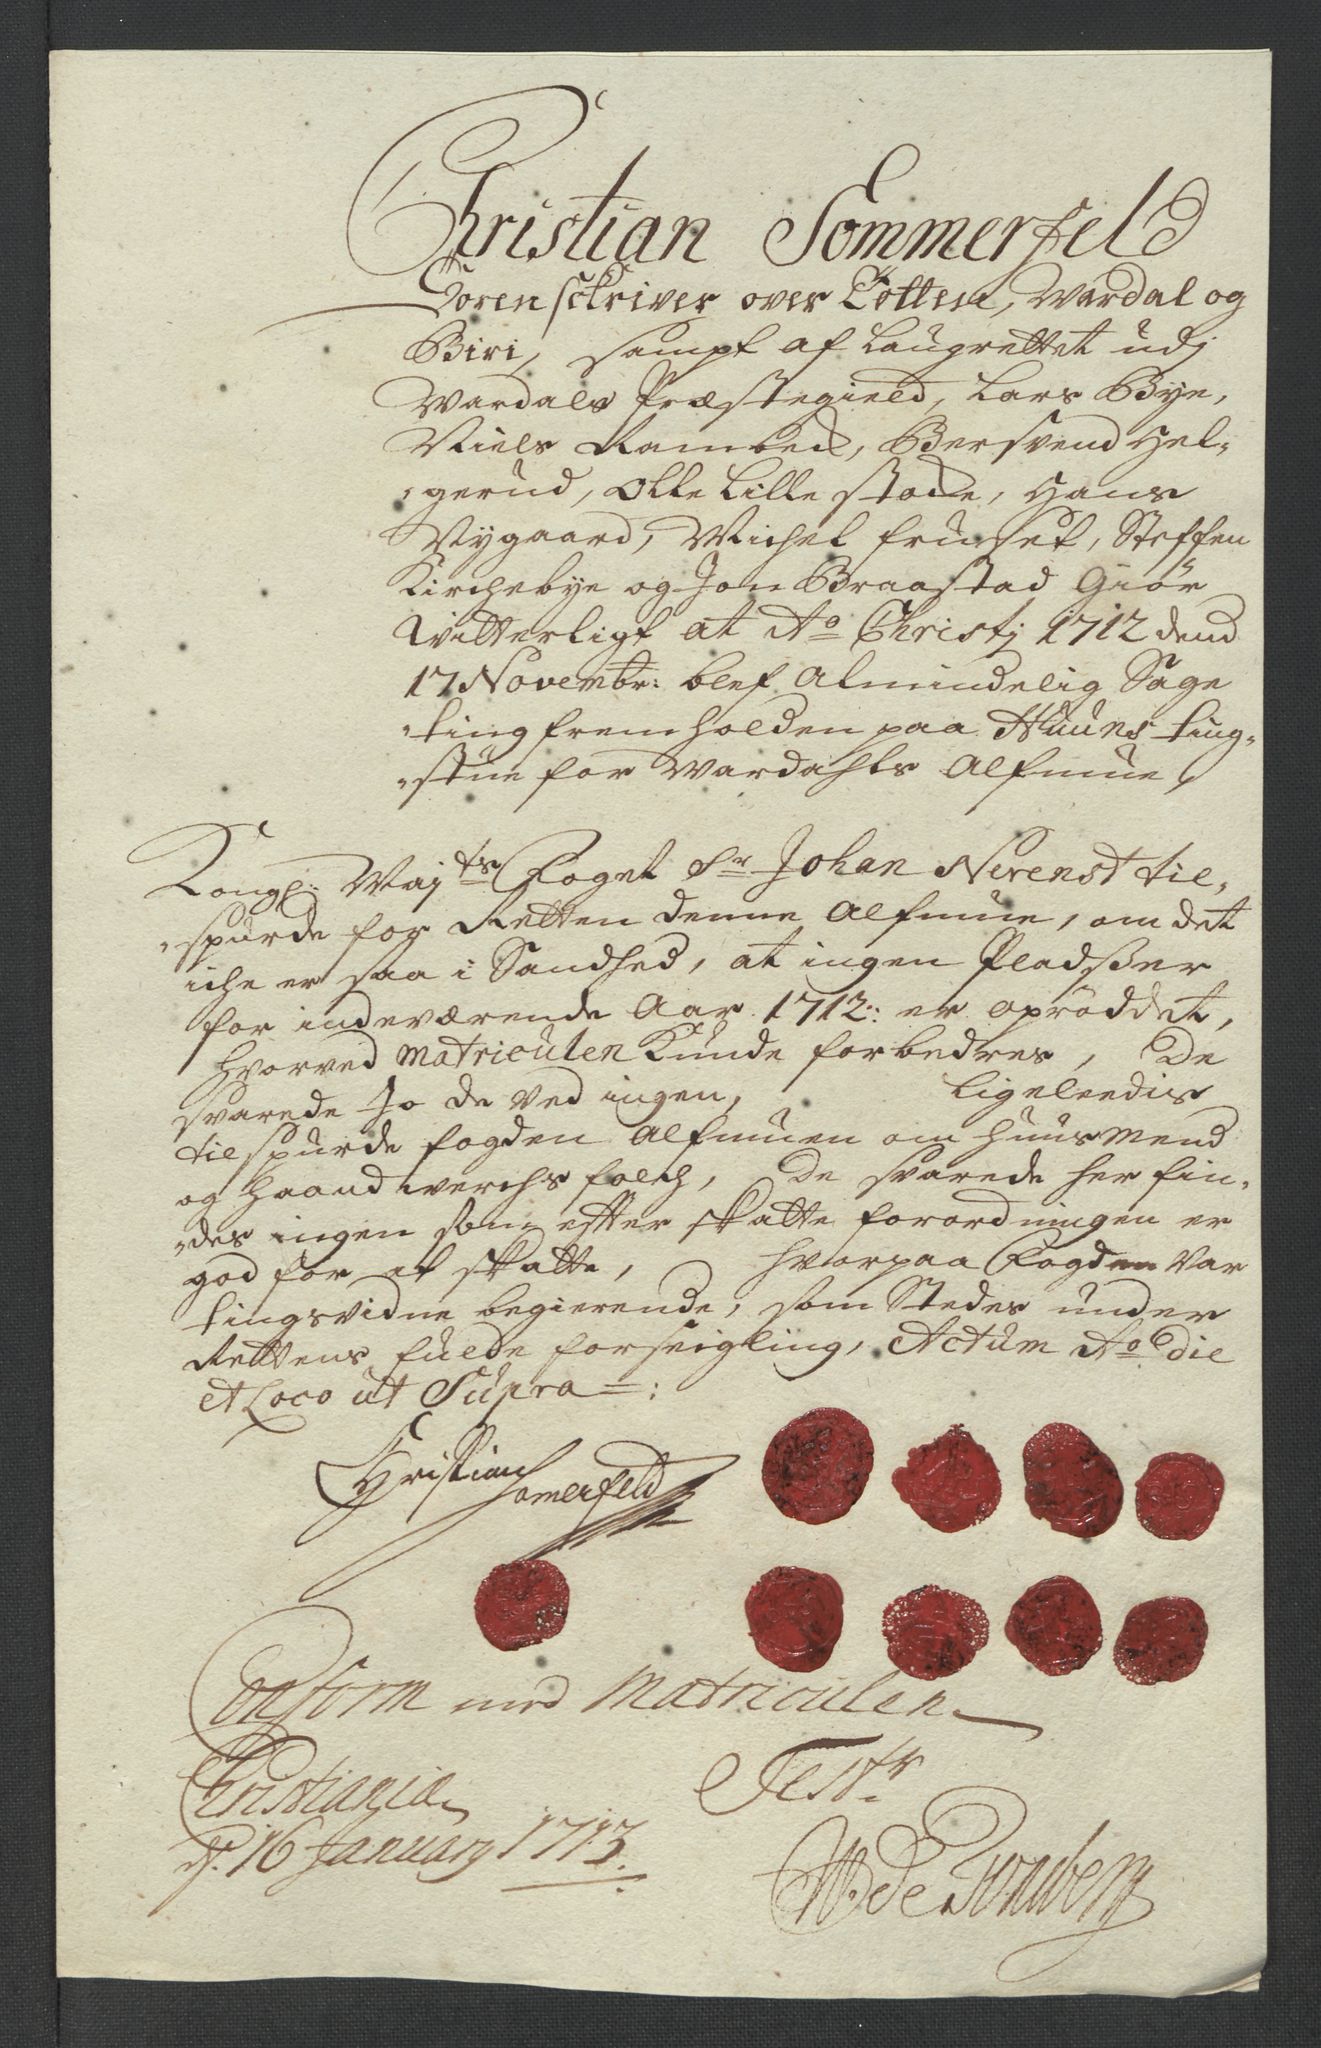 Christian Sommerfeld
Sorenschriver over Totten, Wardal og
Biri, sampt af Laugrettet udj
Wardals Præstegield, Lars Bye,
Niels Rambeck, Bersvend Hel-
gerud, Olle Lille stade, Hans
Nygaard, Michel Fruset, Steffen
Kirchebye og Jon Braastad Giör
Witterligt at Ao Christj 1712 dend
17 Novembr: blef Almindelig Sage
ting fremholden paa Huuns ting-
stue for Wardahls Alfmue,
Kongl: Majts Foget Sr Johan Nerenst til-
spurde for Retten denne Alfmue, om det
iche er saa i Sandhed, at ingen Pladsser
for indeværende Aar 1712: er oprøddet,
hvorved Matriculen Kunde forbedres, De
svarede Jo de ved ingen, ligeleedis
tilspurde fogden Alfmuen om Huusmend
og Haandwerchs folch, De svarede her fin-
des ingen som efter skatte forordningen er
god for at skatte, hvorpaa Fogden var
tingsvidne begierende, som Stedes under
Rettens fulde forseigling, Actum Ao die
et Loco ut Supra
Christian Somerfeld
Conform med Matriculen
Christiania Test:
d. 16 January 1713.